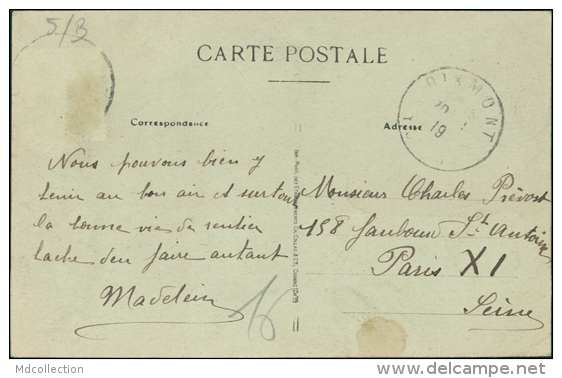 5/3
CARTE POSTALE
DIXMONT
19
Correspondance
Adresse
Nous pouvons bien y
tenir au bon air et surtout
la bonne vie de rentier
tache d'en faire autant
Madelein
Monsieur Charles Prévost
158 Faubourg St Antoine
Paris XI
Seine
16
Mdcollection
delcampe.net